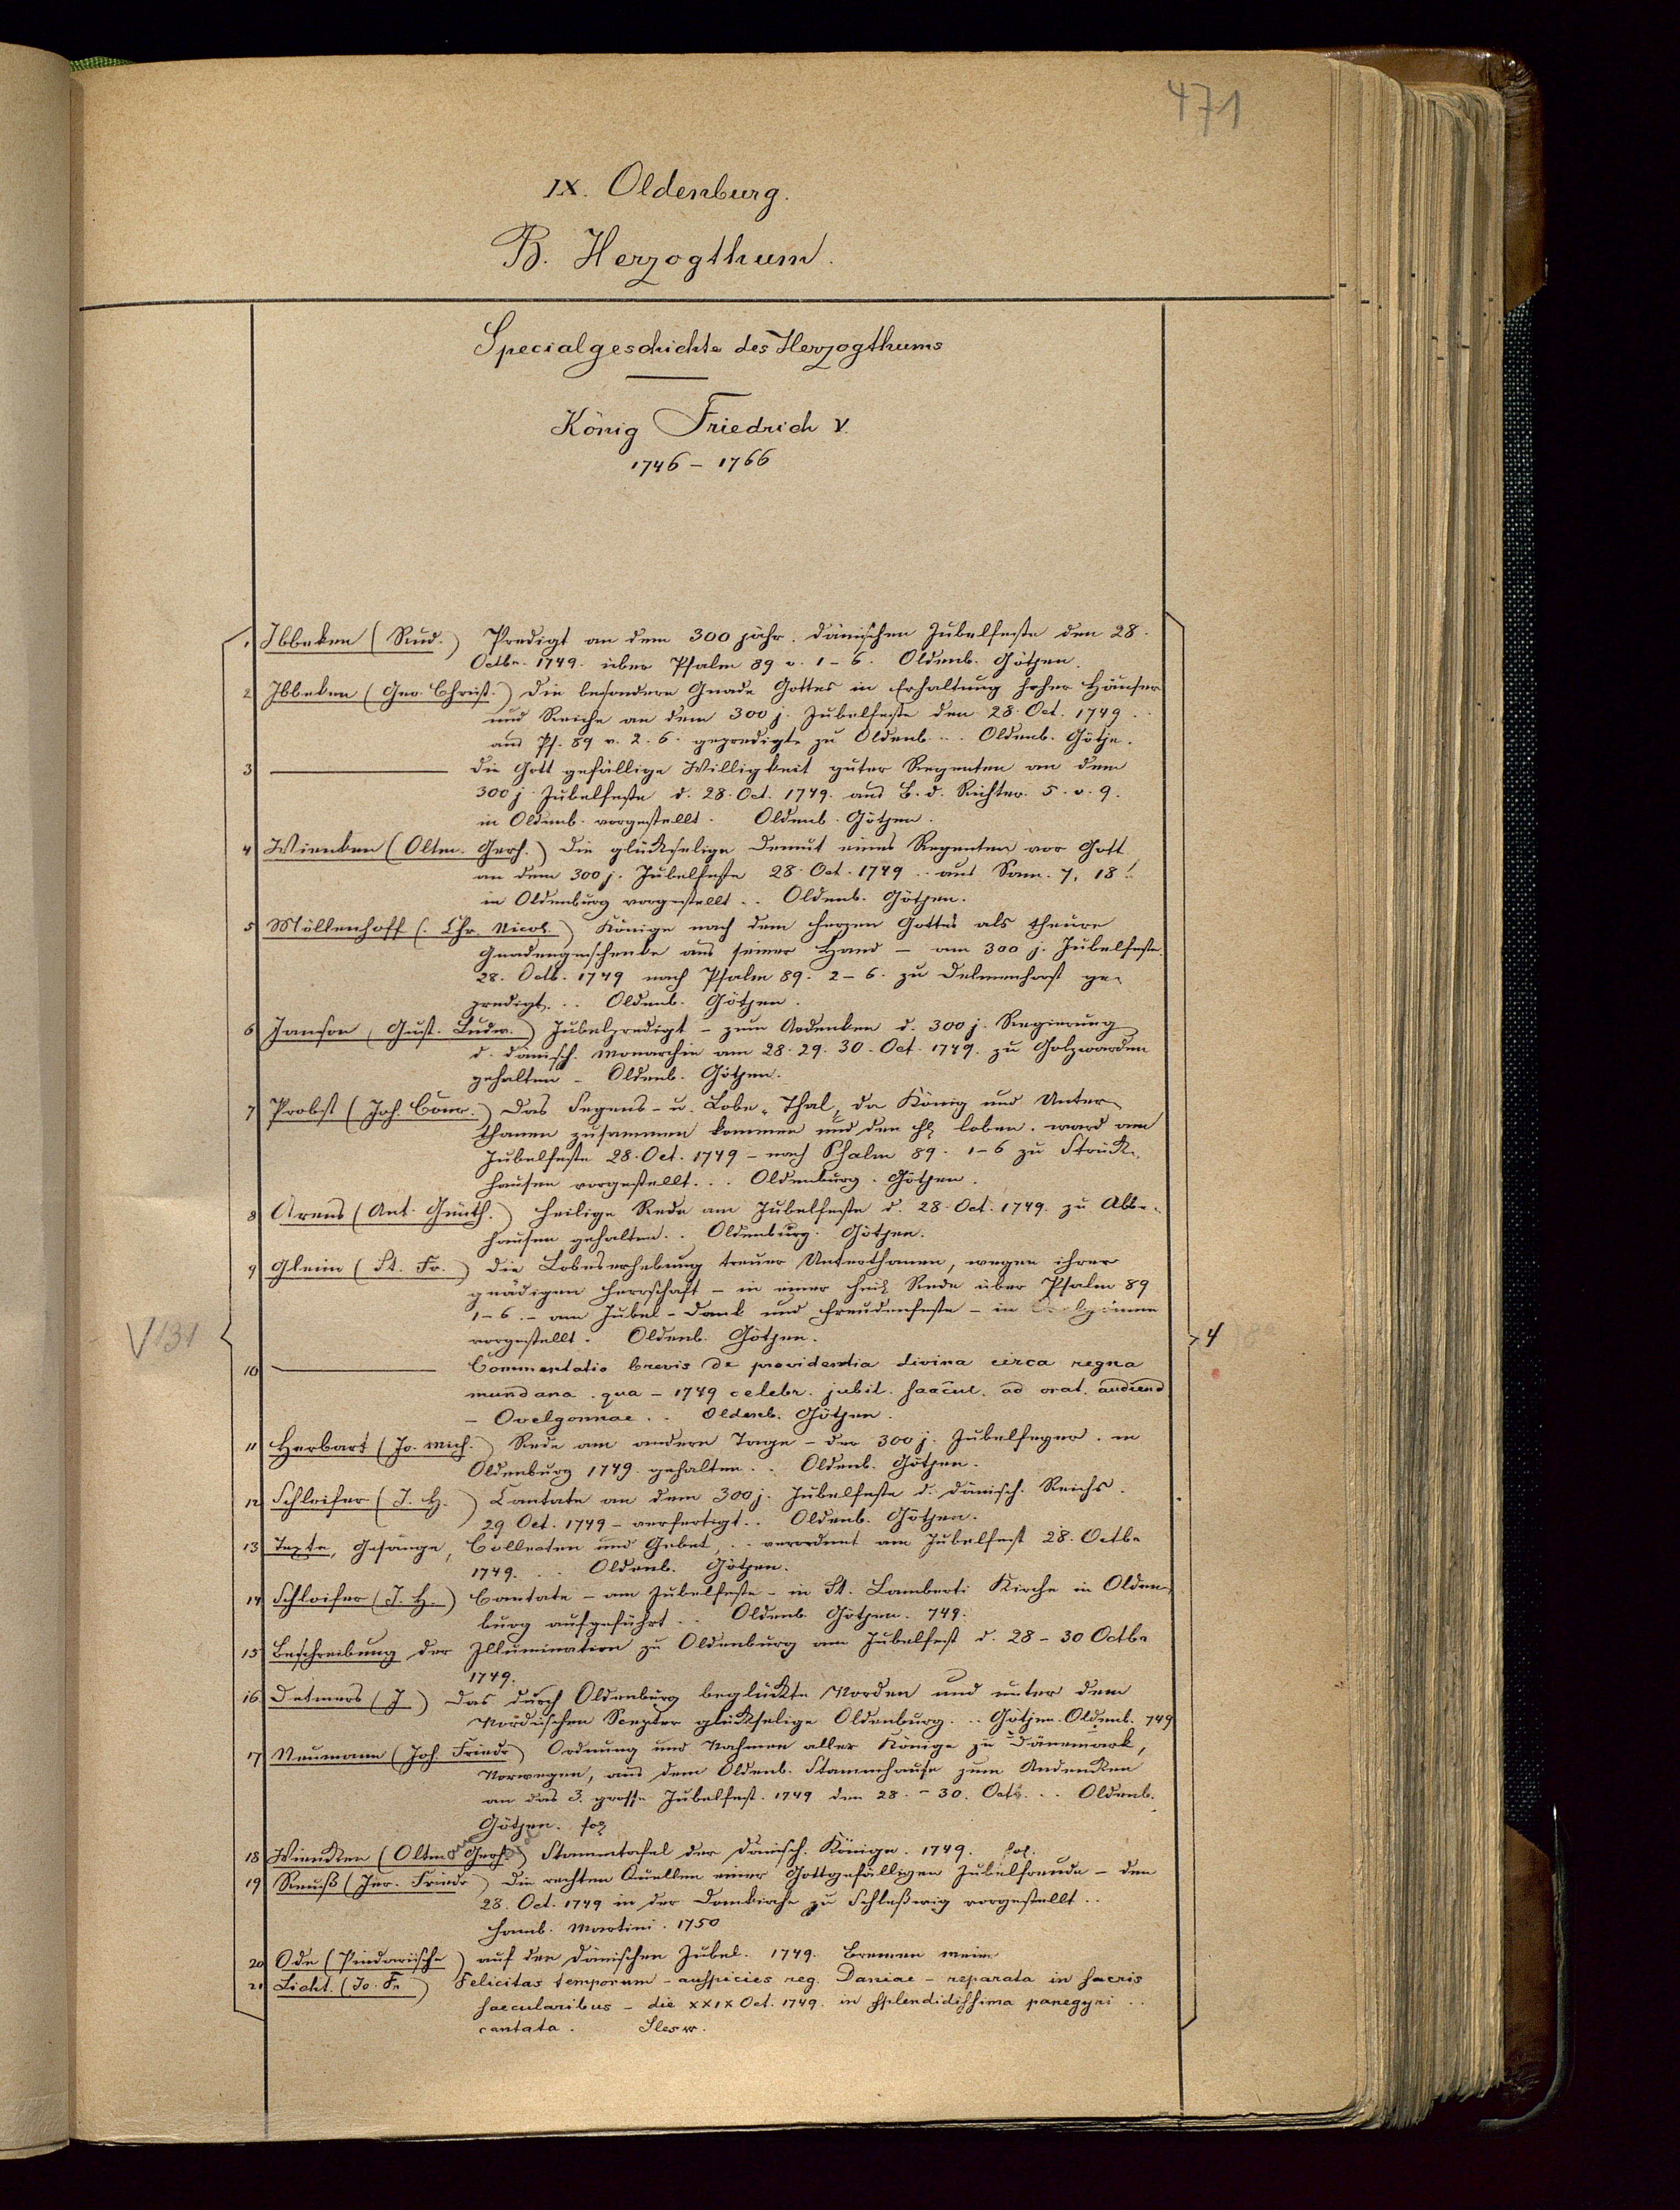 471
IX. Oldenburg.
B. Herzogthum.
Specialgeschichte des Herzogthums
König Friedrich V.
1746 – 1766
1 Ibbeken (Rud.) Predigt an dem 300 jähr. dänischen Jubelfeste den 28.
Octbr. 1749. über Psalm 89 v. 1–6. Oldenb. Götjen.
2 Ibbeken (Geo. Christ.) die besondere Gnade Gottes in Erhaltung hoher Häuser
und Reiche an dem 300 j. Jubelfeste den 28. Oct. 1749 ..
aus Ps. 89 v. 2. 6. gepredigt zu Oldenb. .. Oldenb. Götje.
3 ——— die Gott gefällige Willigkeit guter Regenten an dem
300 j. Jubelfeste d. 28. Oct. 1749. aus B. d. Richter. 5. v. 9.
in Oldenb. vorgestellt. Oldenb. Götjen.
4 Wienken (Oltm. Gerh.) die glückselige Demut eines Regenten vor Gott
an dem 300 j. Jubelfeste 28. Oct. 1749 .. aus Sam. 7, 18.
in Oldenburg vorgestellt .. Oldenb. Götjen.
5 Möllenhoff (. Chr. Nicol.) Könige nach dem Herzen Gottes als theure
Gnadengeschenke aus seiner Hand – am 300 j. Jubelfeste
28. Octb. 1749 nach Psalm 89. 2–6. zu Delmenhorst ge-
predigt. .. Oldenb. Götjen.
6 Janson (Gust. Ludw.) Jubelpredigt – zum Andenken d. 300 j. Regierung
d. dänisch. Monarchie am 28. 29. 30. Oct. 1749. zu Golzwarden
gehalten – Oldenb. Götjen.
7 Probst (Joh. Conr.) Das Segens- u. Lobe-Thal, da König und Unter-
thanen zusammen kommen und den H. loben. ward am
Jubelfeste 28. Oct. 1749 – nach Psalm 89. 1–6 zu Strück-
hausen vorgestellt. .. Oldenburg. Götjen.
8 Arens (Ant. Günth.) heilige Rede am Jubelfeste d. 28. Oct. 1749. zu Abbe-
hausen gehalten. . Oldenburg. Götjen.
9 Gleim (St. Fr.) die Lobeserhebung treuer Unterthanen, wegen ihrer
gnädigen Herrschaft – in einer heil. Rede über Psalm 89
1–6. – am Jubel- Dank und Freudenfeste – in
vorgestellt. Oldenb. Götjen.
V 131
4
10 ——— Commentatio brevis de providentia divina circa regna
mundana. qua – 1749 celebr. jubil. saecul. ad orat. audiend
– Ovelgonnae .. Oldenb. Götjen.
11 Herbart (Jo. Mich.) Rede am andern Tage – der 300 j. Jubelfeyer. in
Oldenburg 1749. gehalten .. Oldenb. Götjen.
12 Schleifer (J. H.) Cantate an dem 300 j. Jubelfeste d. dänisch. Reichs.
29 Oct. 1749 – verfertigt .. Oldenb. Götjen.
13 Texte, Gesänge, Collecten und Gebet, .. verordnet am Jubelfest 28. Octbr
1749. .. Oldenb. Götjen.
14 Schloifer (J. H.) Cantate – am Jubelfeste – in St. Lamberti Kirche in Olden-
burg aufgeführt .. Oldenb. Götjen. 749.
15 Beschreibung der Illumination zu Oldenburg am Jubelfest d. 28 – 30 Octbr
1749.
16. Detmers (J) Das durch Oldenburg beglückte Norden und unter dem
Nordischen Scepter glückselige Oldenburg. .. Götjen. Oldenb. 749
17 Neumann (Joh. Friedr) Ordnung und Nahmen aller Könige zu Dänemark,
Norwegen, aus dem Oldenb. Stammhause zum Andenken
an das 3. grosse Jubelfest. 1749 den 28. – 30. Oct. .. Oldenb.
Götjen. fol
18 Wiencken (Oltm Gerh.) Stammtafel der dänisch. Könige. 1749. fol.
19 Reuß (Jer. Friedr) Die rechten Quellen einer Gottgefälligen Jubelfreude – den
28. Oct. 1749 in der Domkirche zu Schleßwig vorgestellt ..
Hamb. Martini. 1750
20 Ode (Pindarische) auf den dänischen Jubel. 1749. Bremen Meier
21 Licht. (Jo. Fr) Felicitas temporum – auspicies reg. Daniae – reparata in sacris
saecularibus – die XXIX Oct. 1749. in splendidissima panegyri ..
cantata. Slesw.